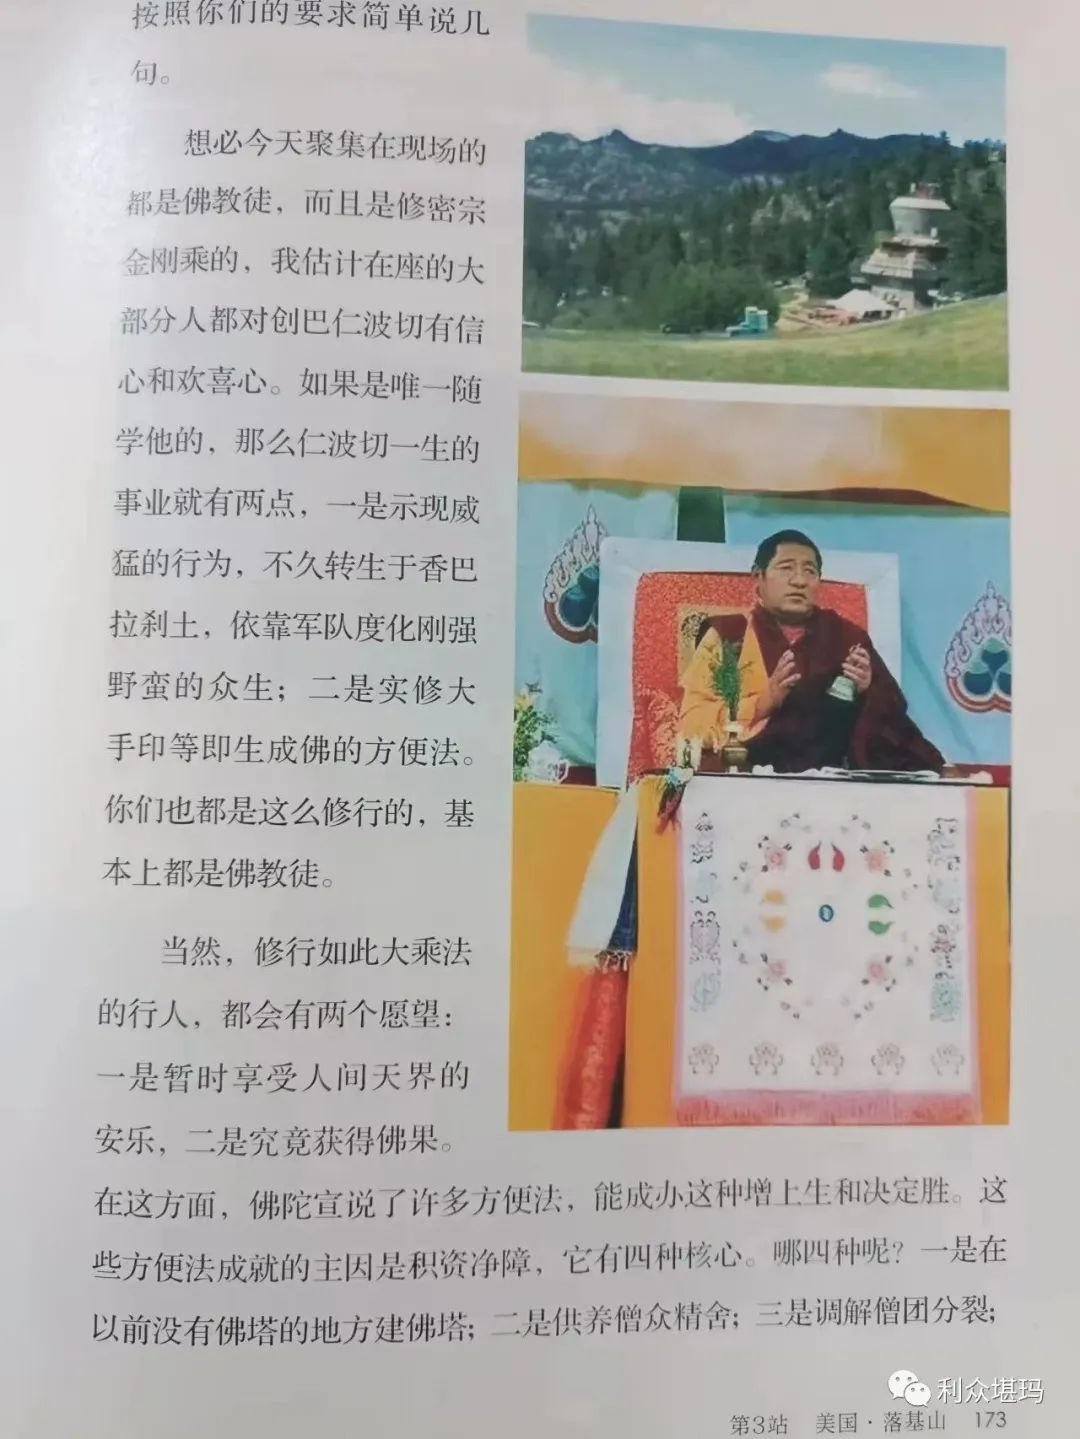 按照你们的要求简单说几
句。
想必今天聚集在现场的
都是佛教徒，而且是修密宗
金刚乘的，我估计在座的大
部分人都对创巴仁波切有信
心和欢喜心。如果是唯一随
学他的，那么仁波切一生的
事业就有两点，一是示现威
猛的行为，不久转生于香巴
拉刹土，依靠军队度化刚强
野蛮的众生；二是实修大
手印等即生成佛的方便法。
你们也都是这么修行的，基
本上都是佛教徒。
当然，修行如此大乘法
的行人，都会有两个愿望：
一是暂时享受人间天界的
安乐，二是究竟获得佛果。
在这方面，佛陀宣说了许多方便法，能成办这种增上生和决定胜。这
些方便法成就的主因是积资净障，它有四种核心。哪四种呢？一是在
以前没有佛塔的地方建佛塔；二是供养僧众精舍；三是调解僧团分裂；
利众堪玛
第3站 美国·落基山 173